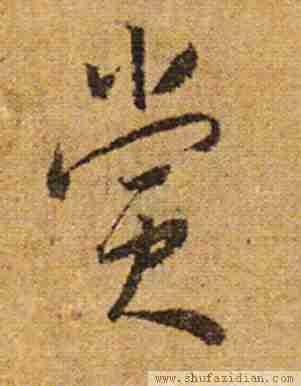 賞
www.shufazidian.com